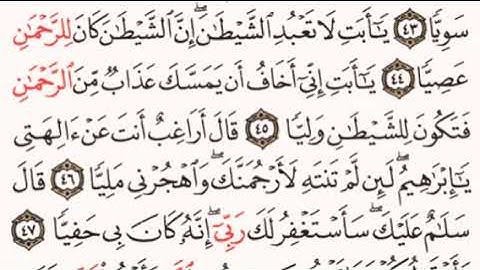 سَوِيًّا ٤٣ يَٰٓأَبَتِ لَا تَعْبُدِ ٱلشَّيْطَٰنَۖ إِنَّ ٱلشَّيْطَٰنَ كَانَ لِلرَّحْمَٰنِ
عَصِيًّا ٤٤ يَٰٓأَبَتِ إِنِّيٓ أَخَافُ أَن يَمَسَّكَ عَذَابٌ مِّنَ ٱلرَّحْمَٰنِ
فَتَكُونَ لِلشَّيْطَٰنِ وَلِيًّا ٤٥ قَالَ أَرَاغِبٌ أَنتَ عَنْ ءَالِهَتِي
يَٰٓإِبْرَٰهِيمُۖ لَئِن لَّمْ تَنتَهِ لَأَرْجُمَنَّكَۖ وَٱهْجُرْنِي مَلِيًّا ٤٦ قَالَ
سَلَٰمٌ عَلَيْكَۖ سَأَسْتَغْفِرُ لَكَ رَبِّيٓۖ إِنَّهُۥ كَانَ بِي حَفِيًّا ٤٧